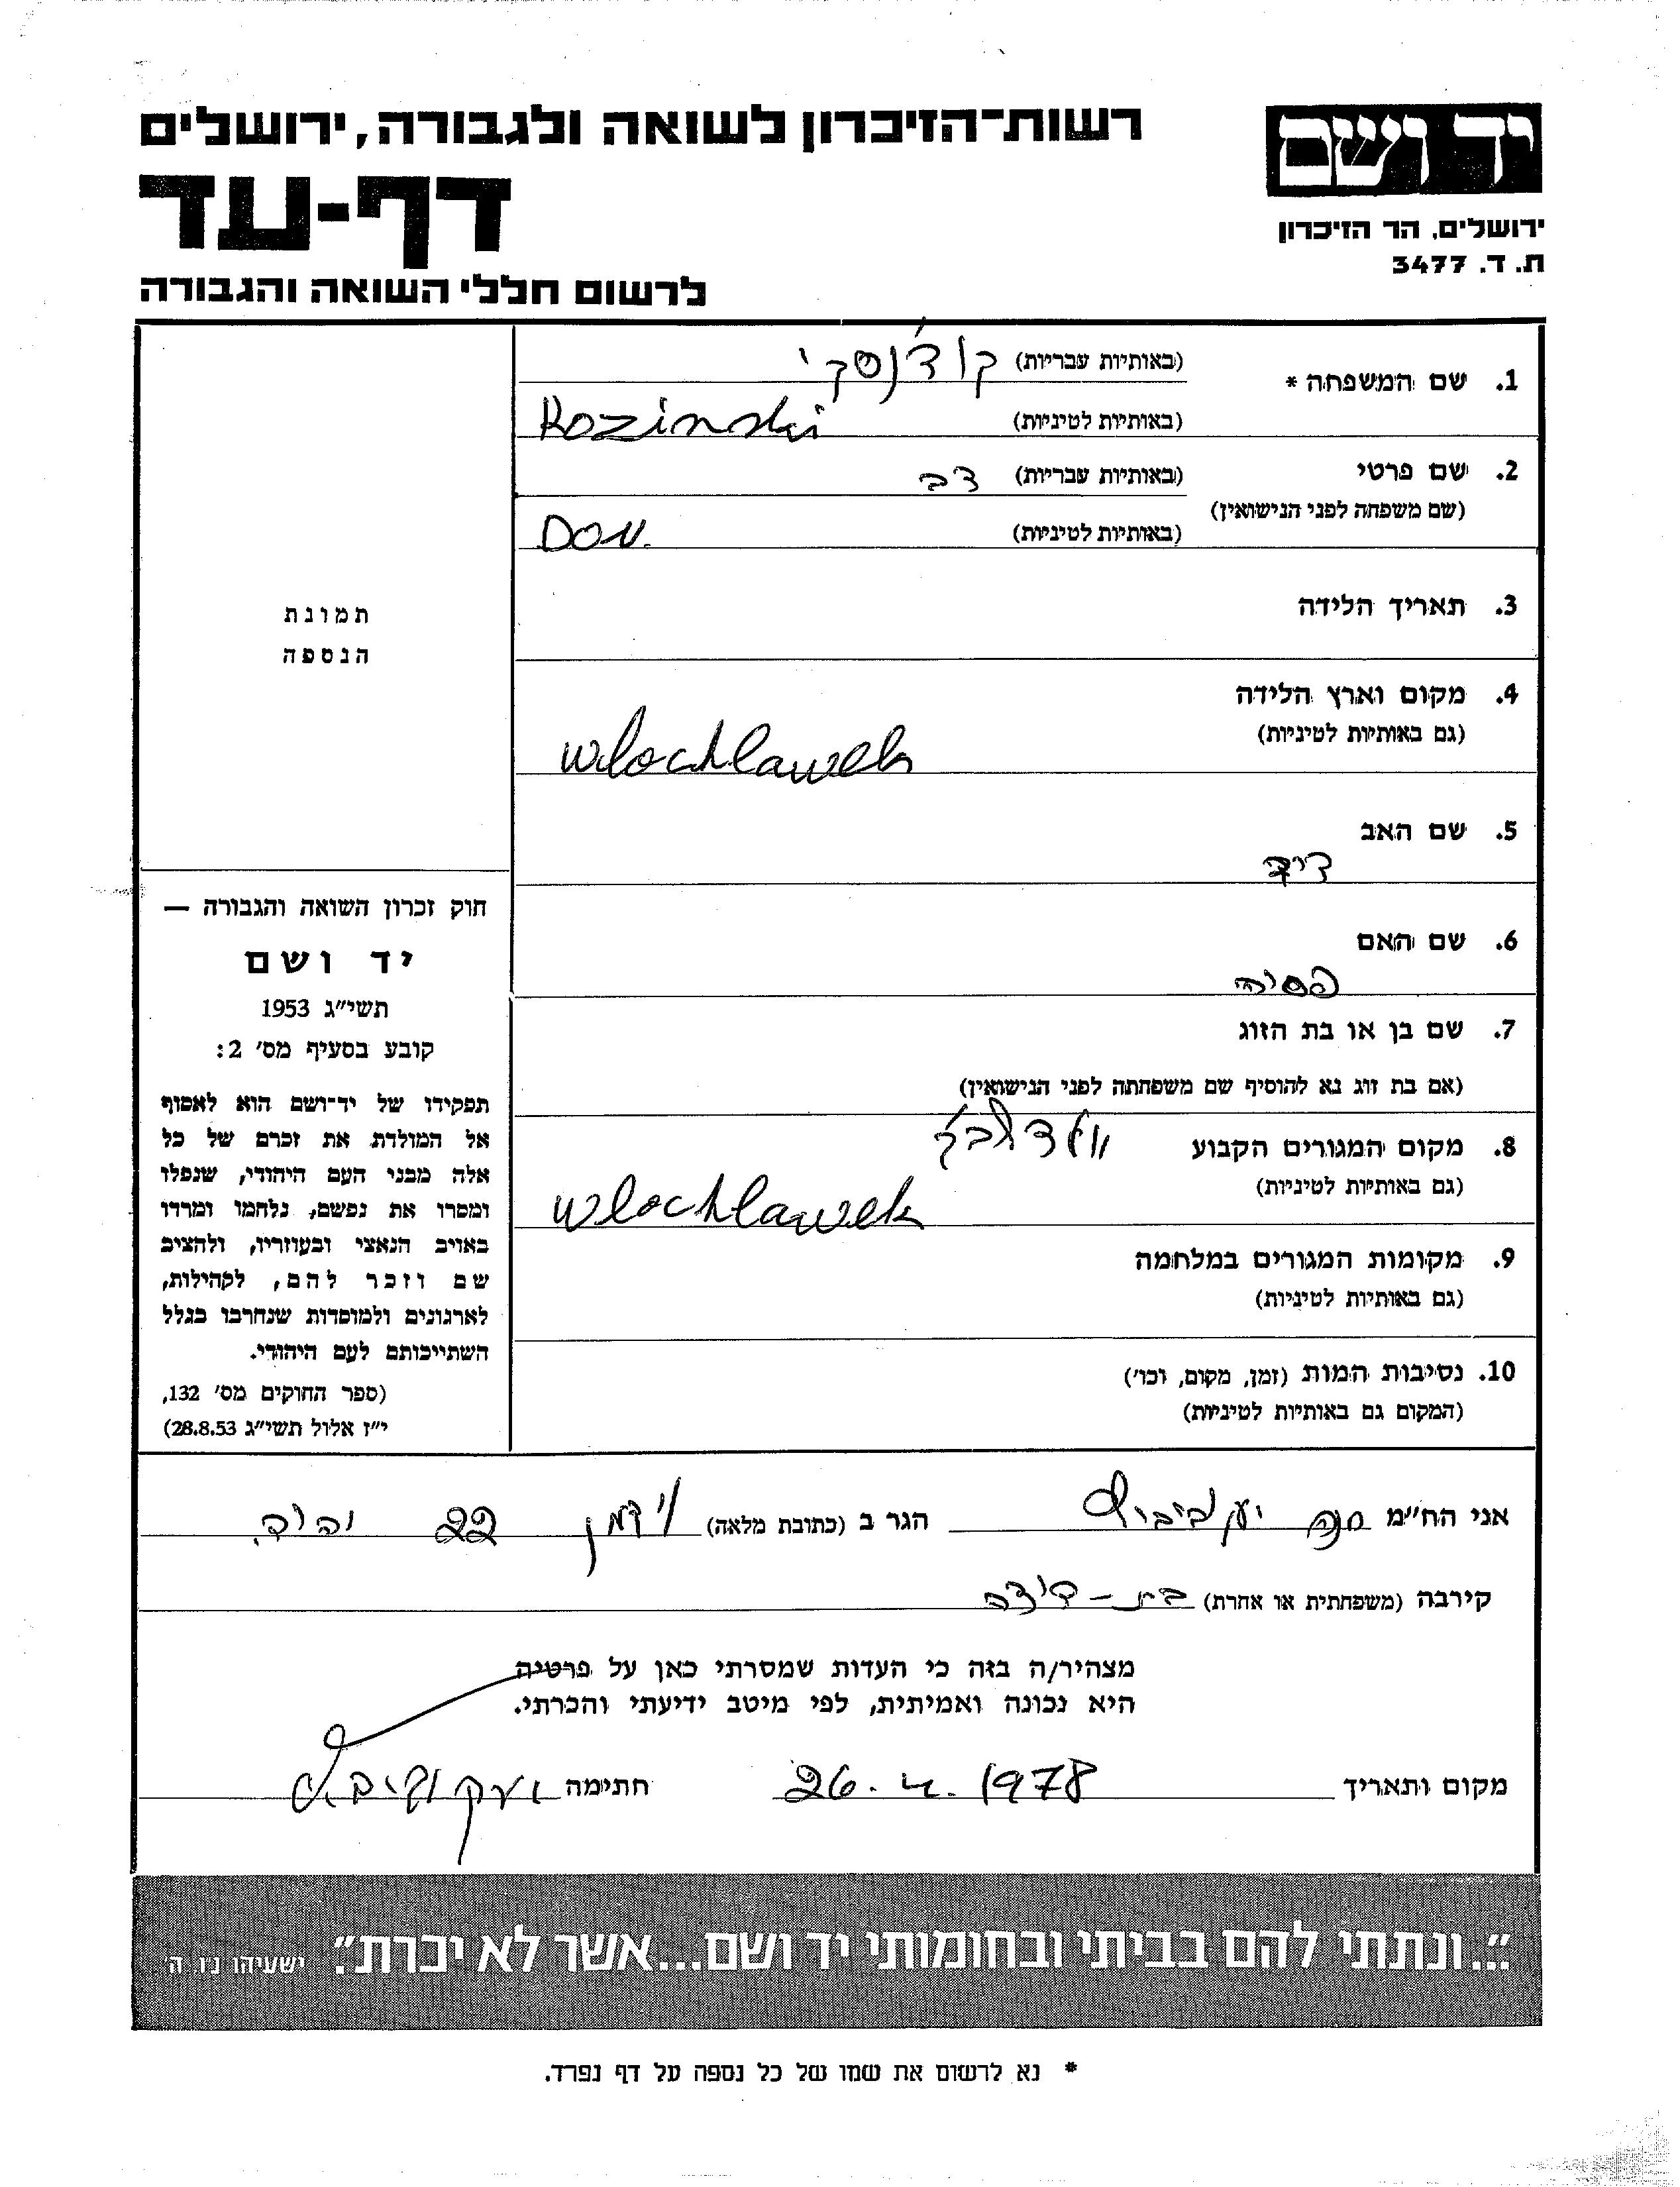 רשות־הזיכרון לשואה ולגבורה, ירושלים
יד ושם
דף-עד
ירושלים, הר הזיכרון
ת. ד. 3477
לרשום חללי השואה והגבורה
1. שם המשפחה * (באותיות עבריות)
(באותיות לטיניות) Kozinski
2. שם פרטי (באותיות עבריות) דב
(שם משפחה לפני הנישואין)
(באותיות לטיניות) Dov.
3. תאריך הלידה
תמונת
הנספה
4. מקום וארץ הלידה
(גם באותיות לטיניות)
wlochlawek
5. שם האב
דוד
6. שם האם
פסיה
7. שם בן או בת הזוג
(אם בת זוג נא להוסיף שם משפחתה לפני הנישואין)
8. מקום המגורים הקבוע
(גם באותיות לטיניות)
wlochlawek
9. מקומות המגורים במלחמה
(גם באותיות לטיניות)
10. נסיבות המות (זמן, מקום, וכו')
(המקום גם באותיות לטיניות)
חוק זכרון השואה והגבורה —
יד ושם
תשי"ג 1953
קובע בסעיף מס' 2:
תפקידו של יד־ושם הוא לאסוף
אל המולדת את זכרם של כל
אלה מבני העם היהודי, שנפלו
ומסרו את נפשם, נלחמו ומרדו
באויב הנאצי ובעוזריו, ולהציב
שם וזכר להם, לקהילות,
לארגונים ולמוסדות שנחרבו בגלל
השתייכותם לעם היהודי.
(ספר החוקים מס' 132,
י"ז אלול תשי"ג 28.8.53)
אני הח"מ יעקובוביץ הגר ב (כתובת מלאה) 22
קירבה (משפחתית או אחרת) בת-דודה
מצהיר/ה בזה כי העדות שמסרתי כאן על פרטיה
היא נכונה ואמיתית, לפי מיטב ידיעתי והכרתי.
מקום ותאריך 26.4.1978 חתימה
"...ונתתי להם בביתי ובחומותי יד ושם...אשר לא יכרת". ישעיהו נו, ה'
* נא לרשום את שמו של כל נספה על דף נפרד.